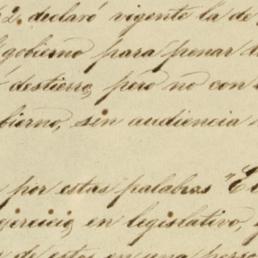 2. declaró vigente la de
gobierno para penar
destierro, pero no con
bierno, sin audiencia
por estas palabras "El
ejercicio en legislativo, y
de estos en una perso